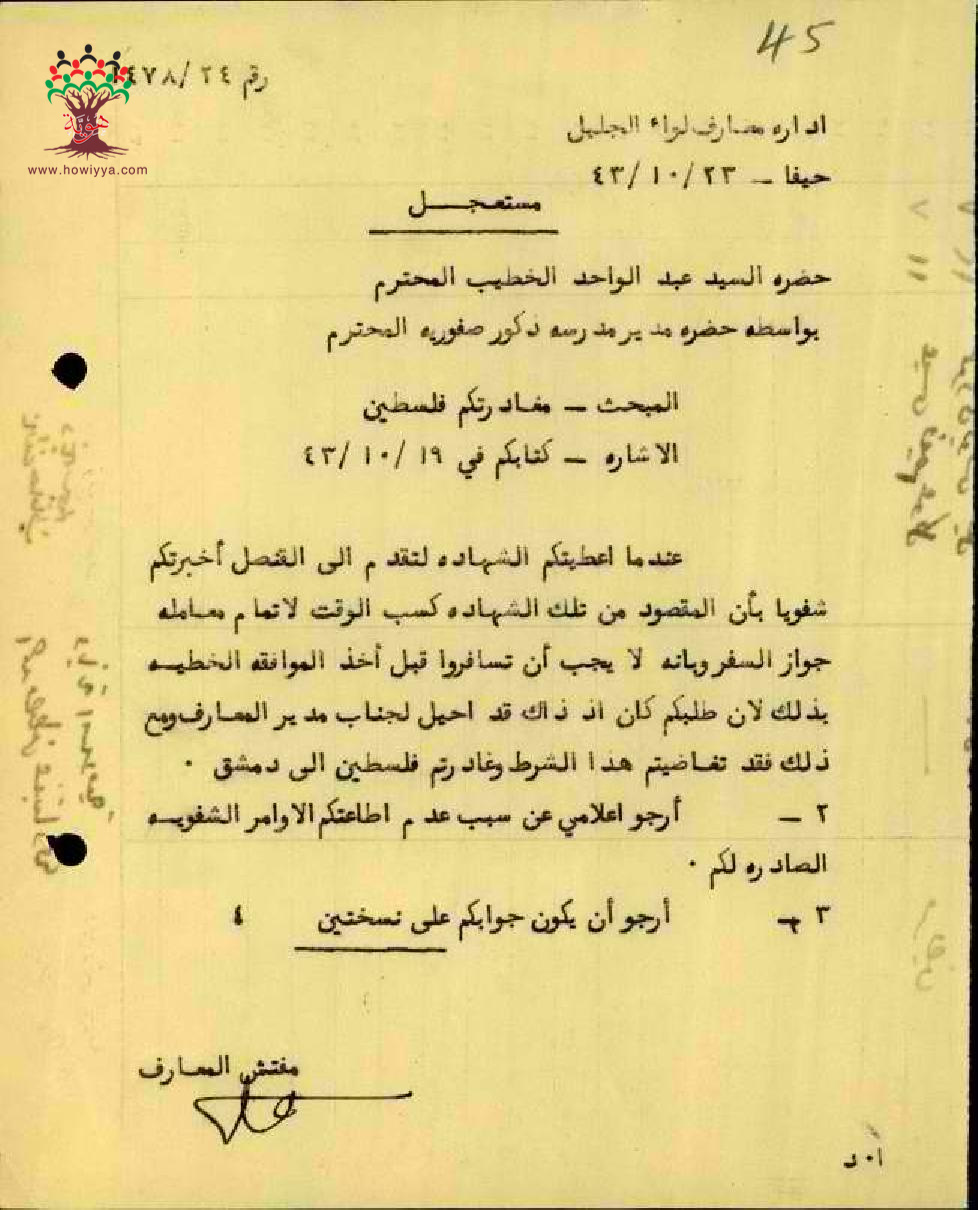 45
رقم ٢٤/ ١٤٧٨
هوية
www.howiyya.com
اداره معارف لواء الجليل
حيفا – ٢٣/ ١٠/ ٤٣
مستعجل
حضره السيد عبد الواحد الخطيب المحترم
بواسطه حضره مدير مدرسه ذكور صفوريه المحترم
المبحث – مغادرتكم فلسطين
الاشاره – كتابكم في ١٩/ ١٠/ ٤٣
عندما اعطيتكم الشهاده لتقدم الى القنصل أخبرتكم
شفويا بأن المقصود من تلك الشهاده كسب الوقت لاتمام معامله
جواز السفر وبانه لا يجب أن تسافروا قبل أخذ الموافقه الخطيه
بذلك لان طلبكم كان اذ ذاك قد احيل لجناب مدير المعارف ومع
ذلك فقد تغاضيتم هذا الشرط وغادرتم فلسطين الى دمشق ٠
٢ – أرجو اعلامي عن سبب عدم اطاعتكم الاوامر الشفويه
الصادره لكم ٠
٣ – أرجو أن يكون جوابكم على نسختين ٤
مفتش المعارف
أ٠د